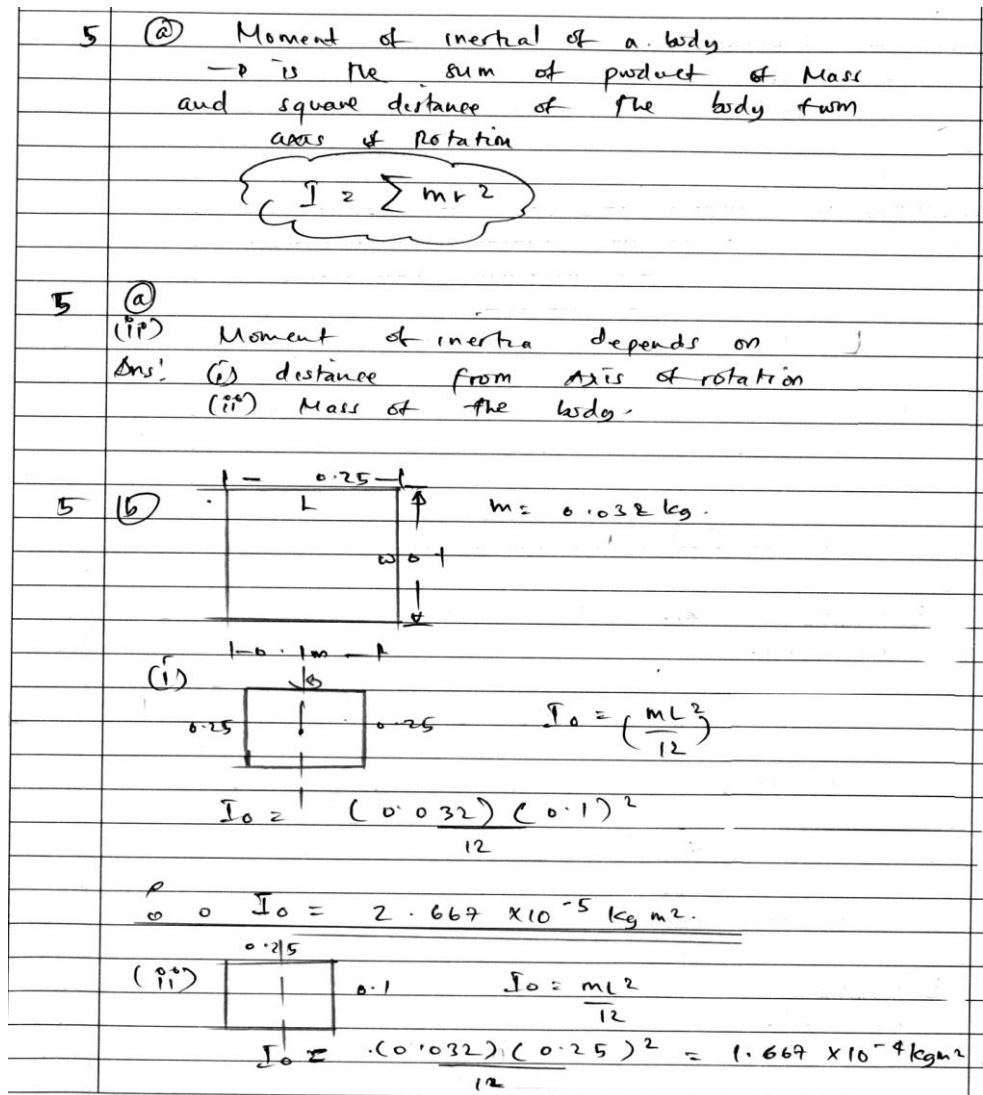 5 (a) Moment of inertial of a body
→ is the sum of product of Mass
and square distance of the body from
axis of Rotation
I = ∑ mr2
5 (a)
(ii) Moment of inertia depends on
Ans: (i) distance from Axis of rotation
(ii) Mass of the body.
0.25
5 (b) L m = 0.032 kg.
w 0.1
0.1m
(i)
0.25 0.25 I₀ = (mL²/12)
I₀ = (0.032)(0.1)²/12
∴ I₀ = 2.667 ×10⁻⁵ kg m2.
0.25
(ii) 0.1 I₀ = mL²/12
I₀ = (0.032)(0.25)²/12 = 1.667 ×10⁻⁴ kgm²